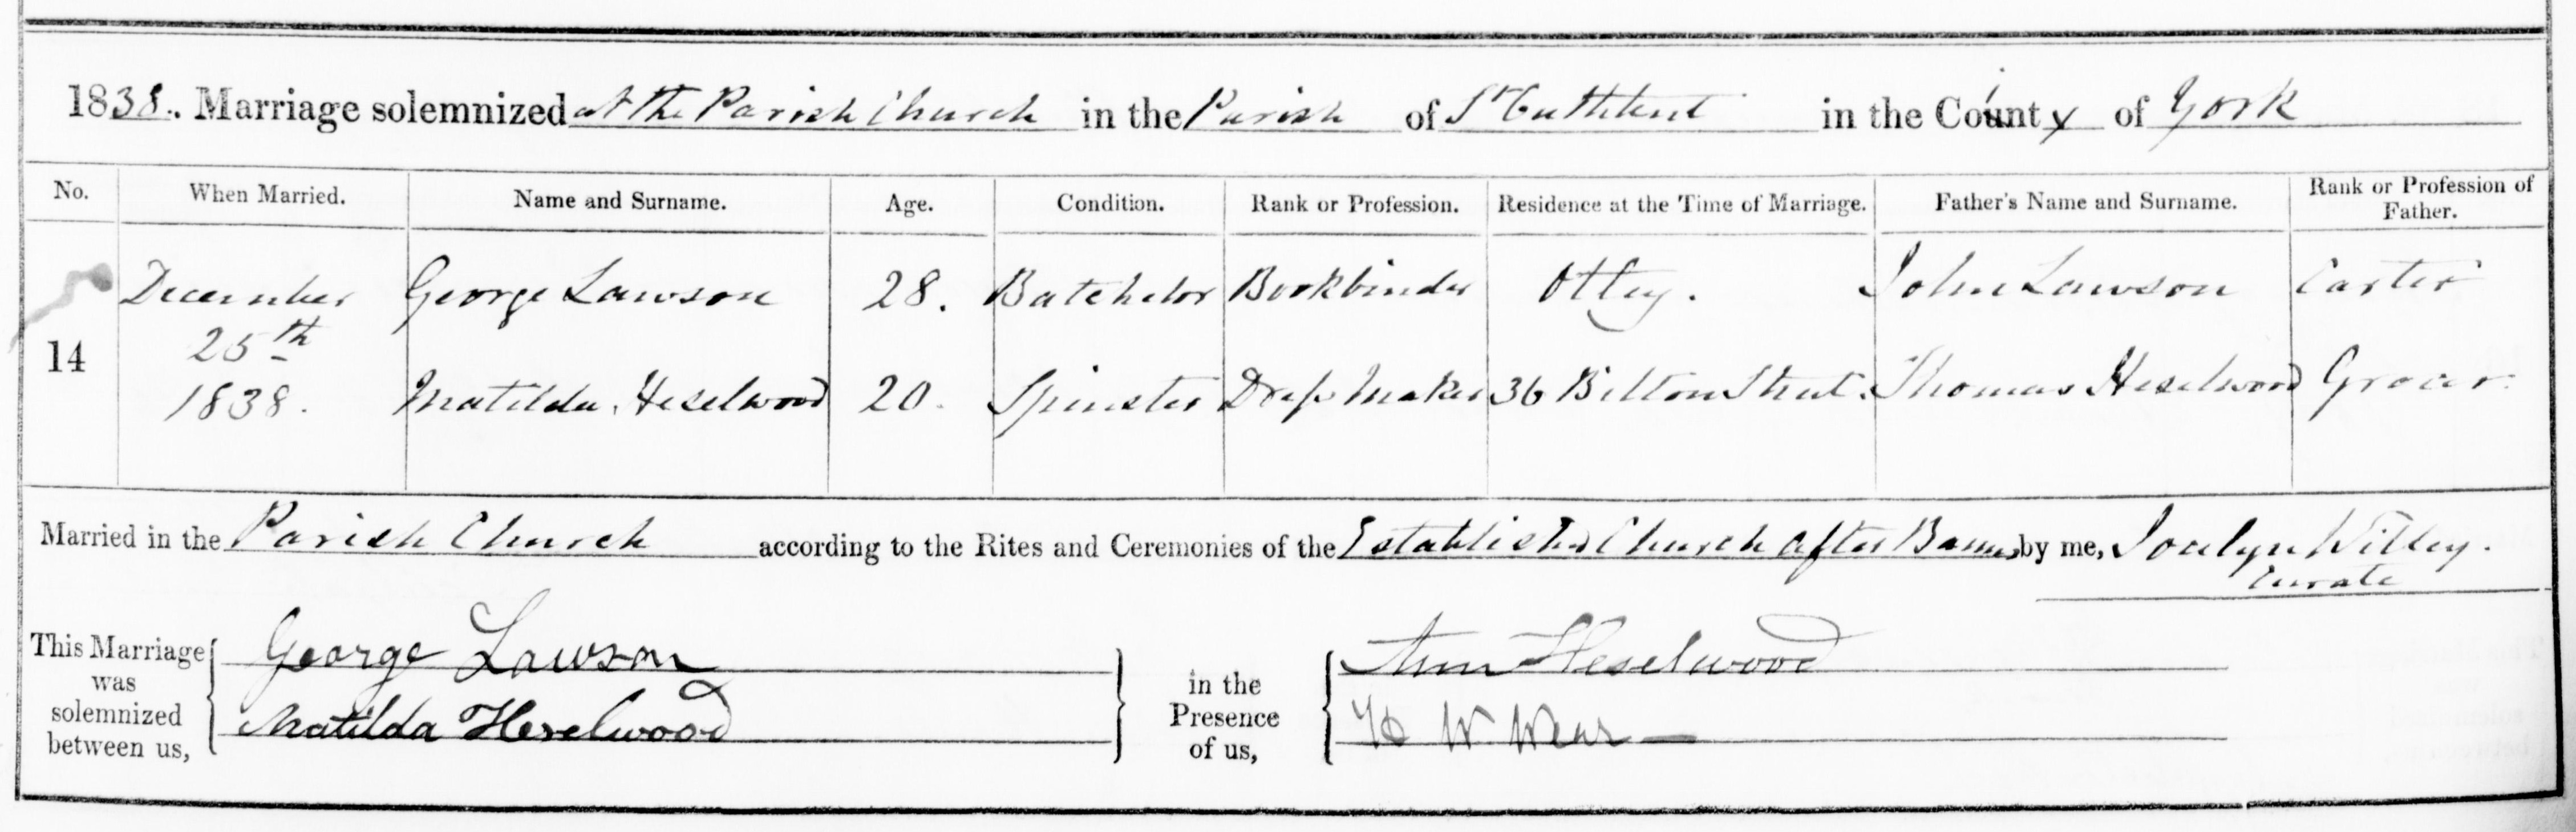 1838. Marriage solemnized at the Parish Church in the Parish of St Cuthbert in the County of York
No. When Married. Name and Surname. Age. Condition. Rank or Profession. Residence at the Time of Marriage. Father's Name and Surname. Rank or Profession of Father.
14 December 25th 1838.
George Lawson 28. Batchelor Bookbinder Otley. John Lawson Carter
Matilda Heselwood 20. Spinster Dress Maker 36 Bilton Street. Thomas Heselwood Grocer.
Married in the Parish Church according to the Rites and Ceremonies of the Established Church after Banns by me, Jocelyn Willey.
Curate
This Marriage was solemnized between us,
George Lawson
Matilda Heselwood
in the Presence of us,
Ann Heselwood
W Wear